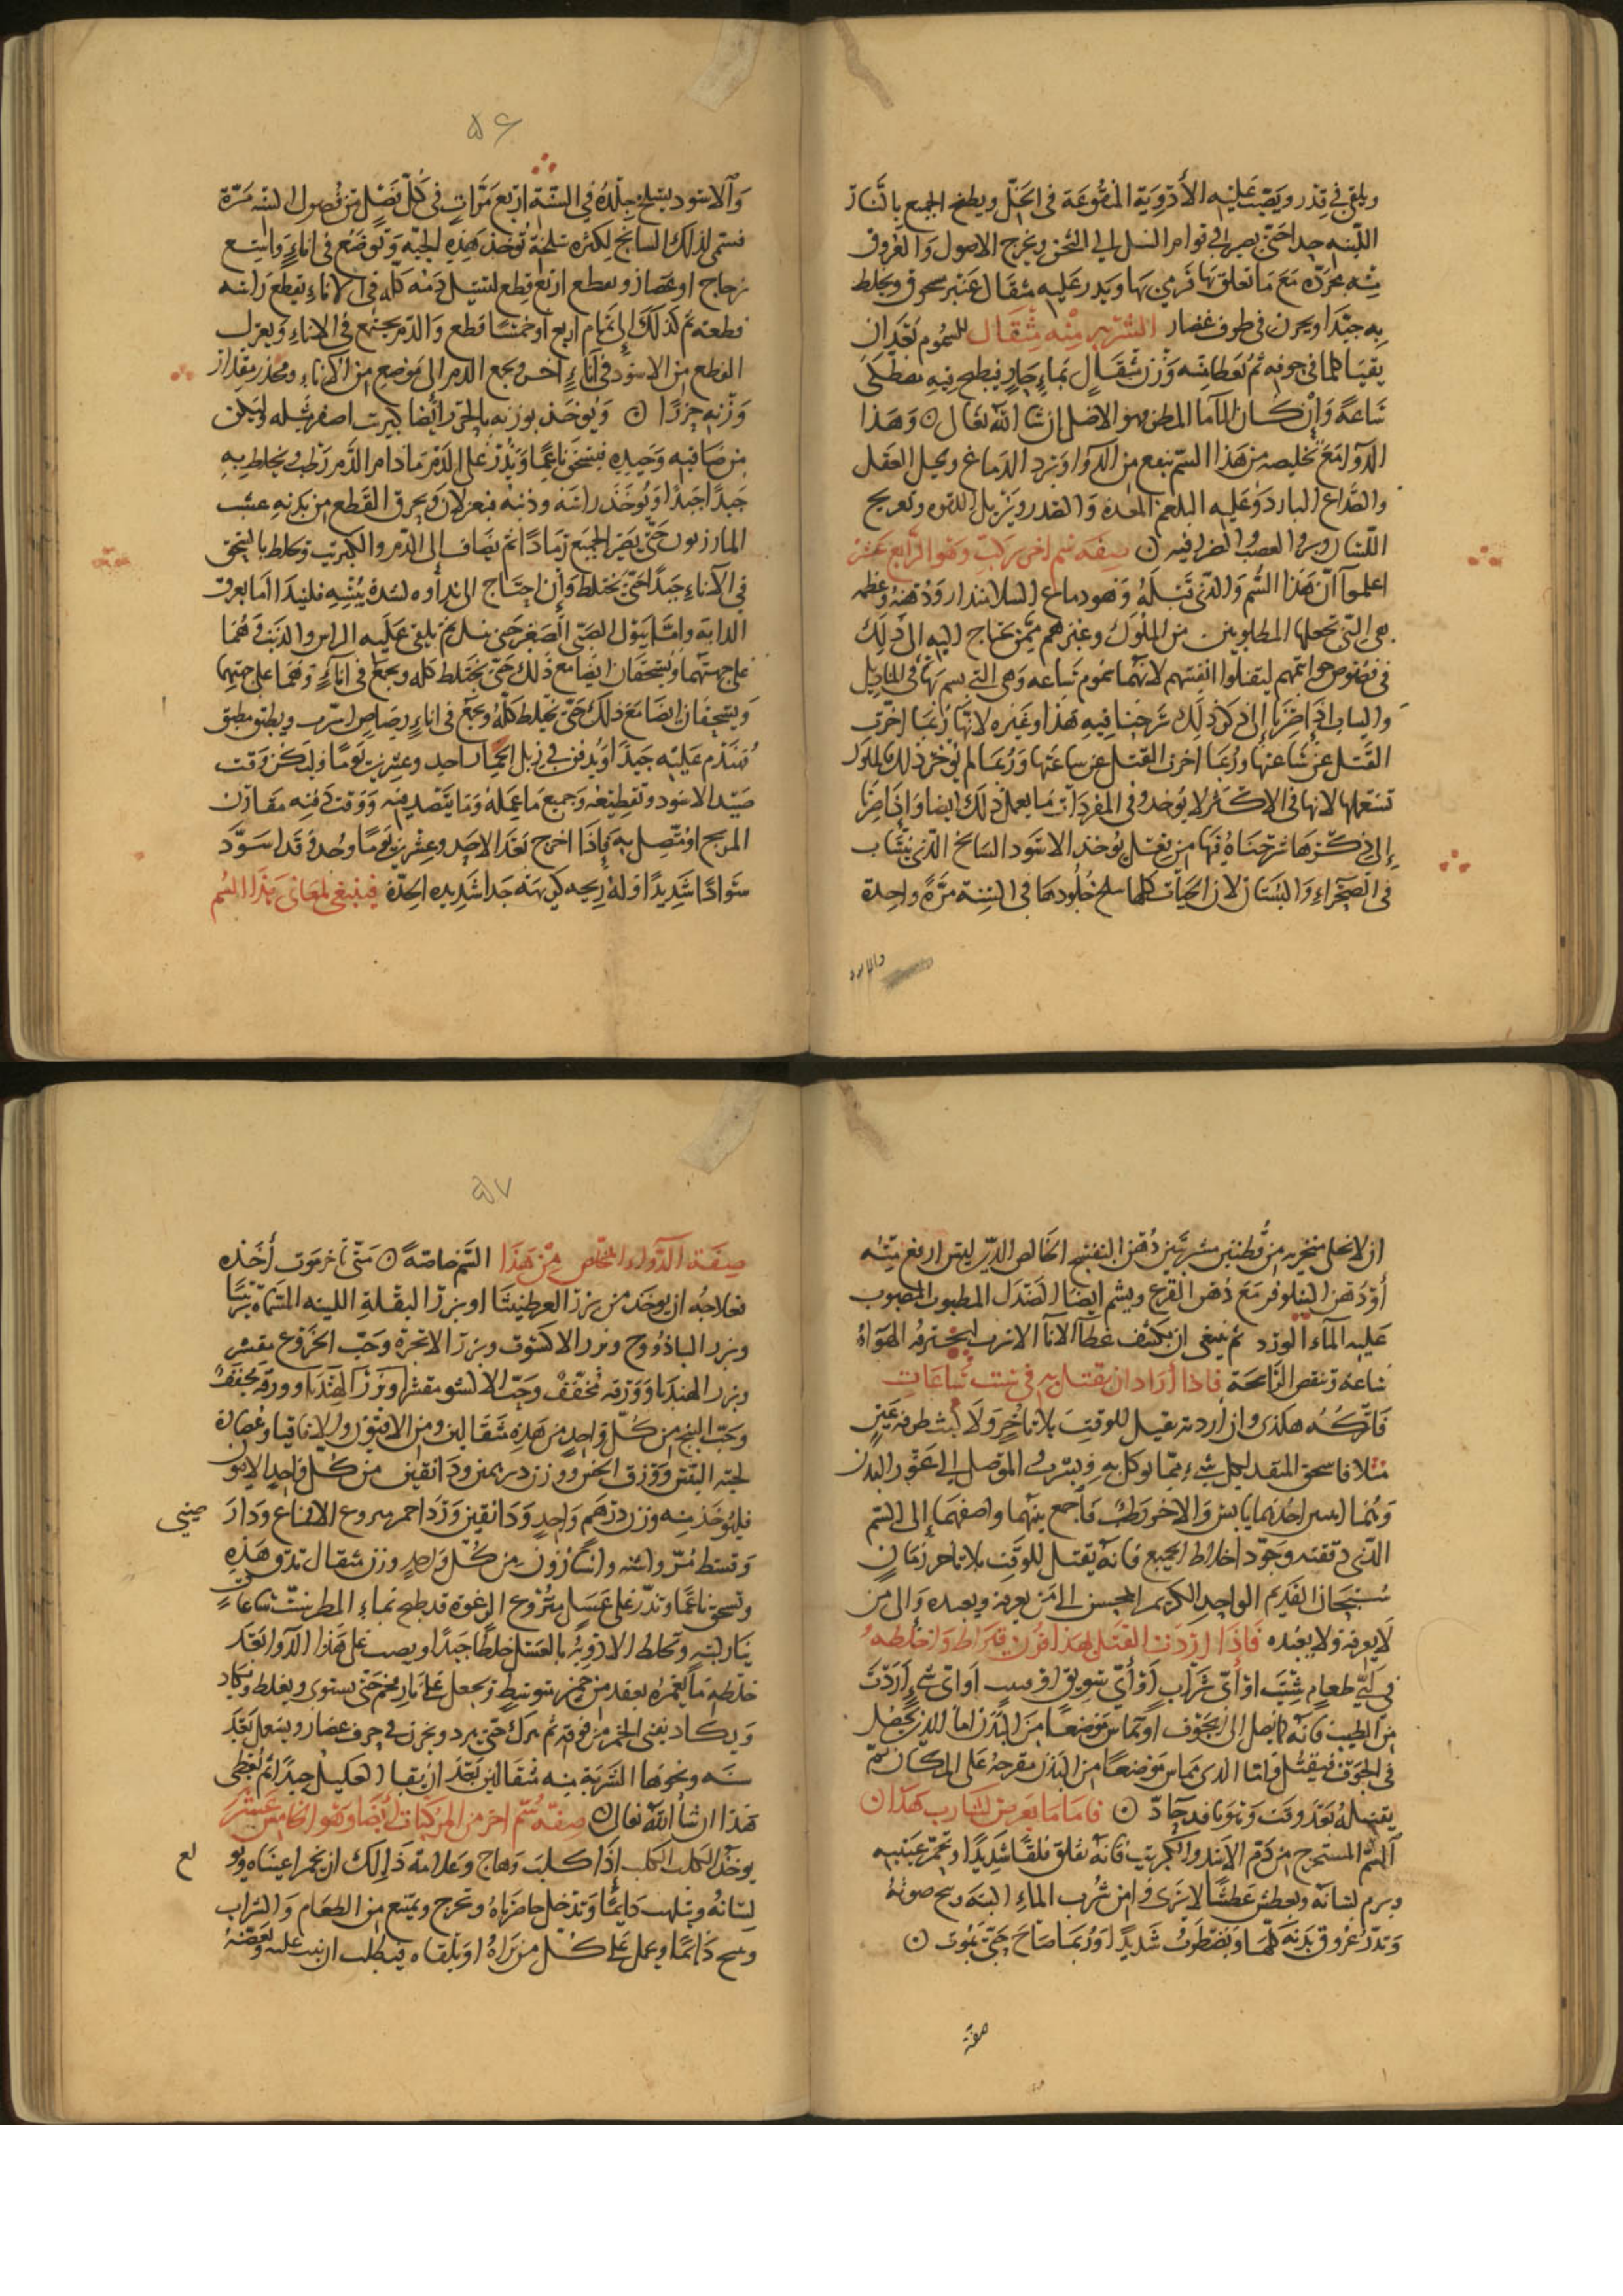 ويلقى في قدر ويصب عليه الأدوية المنقوعة في الخل ويطبخ الجميع بالنار
اللينه جدا حتى يصير في قوام العسل الى الثخن ويخرج الاصول والعروق
منه مجرده مع ما تعلق بها فرمي بها ويذر عليه مثقال عنبر مسحوق ويخلط
به جيدا ويخزن في ظرف غضار الشربه منه مثقال للسموم بعد ان
يتقيا كلما في جوفه ثم يعطا منه وزن مثقال بماء حار
ساعة وان كان الماء المطر فهو الافضل ان شا الله تعالى وهذا
الدوا مع تخليصه من هذا السم ينفع من وبرد الدماغ
والصداع البارد وغلبه البلغم المعدة والصدر ويزيل اللقوه وتعريج
اللسان العصب صفه سم اخر مركب وهو الرابع عشر
اعلموا ان هذا السم والذي قبله وهو دماغ السلامندار ودهنه وعظمه
هي التي تجعلها المطلوبين من الملوك وغيرهم ممن يحتاج اليه الى ذلك
في فصوص خواتمهم ليقتلوا انفسهم لانهما سموم ساعه وهي التي يسم بها في المناديل
والثياب اذا صرنا الى ذكر ذلك شرحنا فيه هذا وغيره لانها ربما اخرت
القتل عن ساعتها وربما اخرت القتل عن ساعتها وربما لم يؤخر ذلك الملوك
تستعملها لانها في الاكثر لا يوخذ وفي المفردات ما يعمل ذلك ايضا واذا صرنا
الى ذكرها شرحناه فيها يوخذ الاسود السالخ الذي ينساب
في الصحراء والبستان لان الحيات كلها تسلخ جلودها في السنة مرة واحدة
والاسود
٥٦
والاسود يسلخ جلده في السنة اربع مرات في كل فصل من فصول السنه مرة
فسمي لذلك السالخ لكثره سلخه توخذ هذه الحيه وتوضع في اناء واسع
زجاج او غضار ويقطع اربع قطع لتسيل دمه كله في الاناء يقطع راسه
قطعه ثم كذلك الى تمام اربع او خمسا قطع والدم يجتمع في الاناء ويعزل
القطع من الاسود في اناء اخر ويجمع الدم الى موضع من الاناء مقدار
وزنه ويؤخذ بوزنه ايضا كبريت اصفر مثله وليكن
من صافيه وجيده فيسحق ناعما ويذر على الدم ما دام الدم رطب ويخلط به
جيدا جيدا ويوخذ راسه وذنبه فيعزلان ويحرق القطع من بدنه عشب
المازريون حتى يصير الجميع رمادا ثم يضاف الى الدم والكبريت وتخلط بالسحق
في الاناء جيدا حتى يختلط وان احتاج الى نداوه لشدة يبسه فليندا اما بعرق
الدابه واما ببول الصبى الصغير حتى ثم يلقى عليه الراس والذنب وهما
على جهتهما ويسحقان ايضا مع ذلك حتى يختلط كله ويجمع في اناء وهما على جهتهما
ويسحقان ايضا مع ذلك حتى يختلط كله ويجمع في اناء رصاص اسرب ويطبق بمطبق
مهندم عليه جيدا ويدفن في زبل احد وعشرين يوما وليكن وقت
صيد الاسود وتقطيعه وجميع ما يعمله وما يقصد منه ووقت دفنه مقارن
المريخ او متصل به فاذا اخرج بعد الاحد وعشرين يوما وجد وقد اسود
سوادا شديدا وله ريحه كريهه جدا شديده الحدة فينبغي لمعاني هذا السم
ان لا يخلي منخريه من قطنتين مشربتين دهن البنفسج الخالص الذي ليس اربع منه
أو دهن النيلوفر مع دهن القرع ويشم ايضا الصندل المطيوب المصبوب
عليه الماء الورد ثم ينبغي ان يكشف غطا الانا الاسرب ليخترقه الهوا
ساعه وتنقص الرائحة فاذا أراد ان يقتل به في ست ساعات
فاتركه هكذى وان أردته يقتل للوقت بلا تاخير ولا لبث طرفه عين
مثلا فاسحق لكل شيء مما يوكل به ويشرب والموصل الى عمق البدن
وهما احدهما يابس والاخر رطب فاجمع بينهما واضفهما الى السم
الذي دققته وجود اخلاط الجميع فانه يقتل للوقت بلا تاخر زمان
سبحان القديم الواحد الكريم المحسن الى من يعرفه ويعبده والى من
لا يعرفه ولا يعبده فاذا اردت القتل بهذا فزن قيراط واخلطه
في اي طعام شئت او أي شراب أو أي سويق او او اي شيء اردت
من الطيب فانه يصل الى الجوف أو يماس موضعا من البدن اما الذي يحصل
في الجوف فيقتل واما الذي يماس موضعا من البدن يقرحه على المكان ثم
يقتله بعد وقت وهو نافد حاد فاما ما يعرض لشارب هذا
السم المستخرج من دم الاسود والكبريت فانه يقلق قلقا شديدا وتحمر عينيه
ويرم لسانه ويعطش عطشا لا يروى من شرب الماء البته ويبح صوته
وتدر عروق بدنه كلها ويضطرب شديدا وربما صاح حتى يموت
صفة
٥٧
صفة الدواء المخلص من هذا السم خاصة متى تاخر موت أخذه
فعلاجه ان يوخذ من بزر العرطنيثا او بزر البقلة اللينه
وبزر الباذروج وبزر الاكشوث وبزر الانجرة وحب الخروع مقشر
وبزر الهندبا وورقه مجفف وحب مقشر وبزر الهندبا وورقه مجفف
وحب من كل واحد من هذه مثقالين ومن الافيون والاقاقيا وعصارة
لحيه التيس وورق الخس وزن درهمين ودانقين من كل واحد
فليوخذ منه وزن درهم واحد ودانقين ورد احمر منزوع الاقماع ودار
صيني
وقسط مر وانيسون من كل واحد وزن مثقال تدق هذه
وتسحق ناعما وتذر على عسل منزوع الرغوه قد طبخ بماء المطر ست ساعات
بنار لينه وتخلط الادويه بالعسل خلطا جيدا ويصب على هذا الدوا بعد
خلطه ما يغمره من خمر متوسط ويجعل على نار فحم حتى يستوى ويغلظ ويكاد
ويكاد يفنى الخمر من فوقه ثم يترك حتى يبرد ويخزن في ظرف غضار ويستعمل بعد
سنه ونحوها الشربة منه مثقالين بعد ان يتقيا العليل جيدا ثم يعطى
هذا ان شا الله تعالى صفة سم اخر من المركبات أيضا وهو الخامس عشر
يوخذ الكلب الكلب اذا كلب وهاج وعلامة ذلك ان يحمر اعيناه
لع
لسانه ويلهث دايما وتدخل خاصرتاه وتخرج ويمتنع من الطعام والشراب
دائما ويحمل على كل من يراه او يلقاه فيطلب ان يثب عليه ويعضه